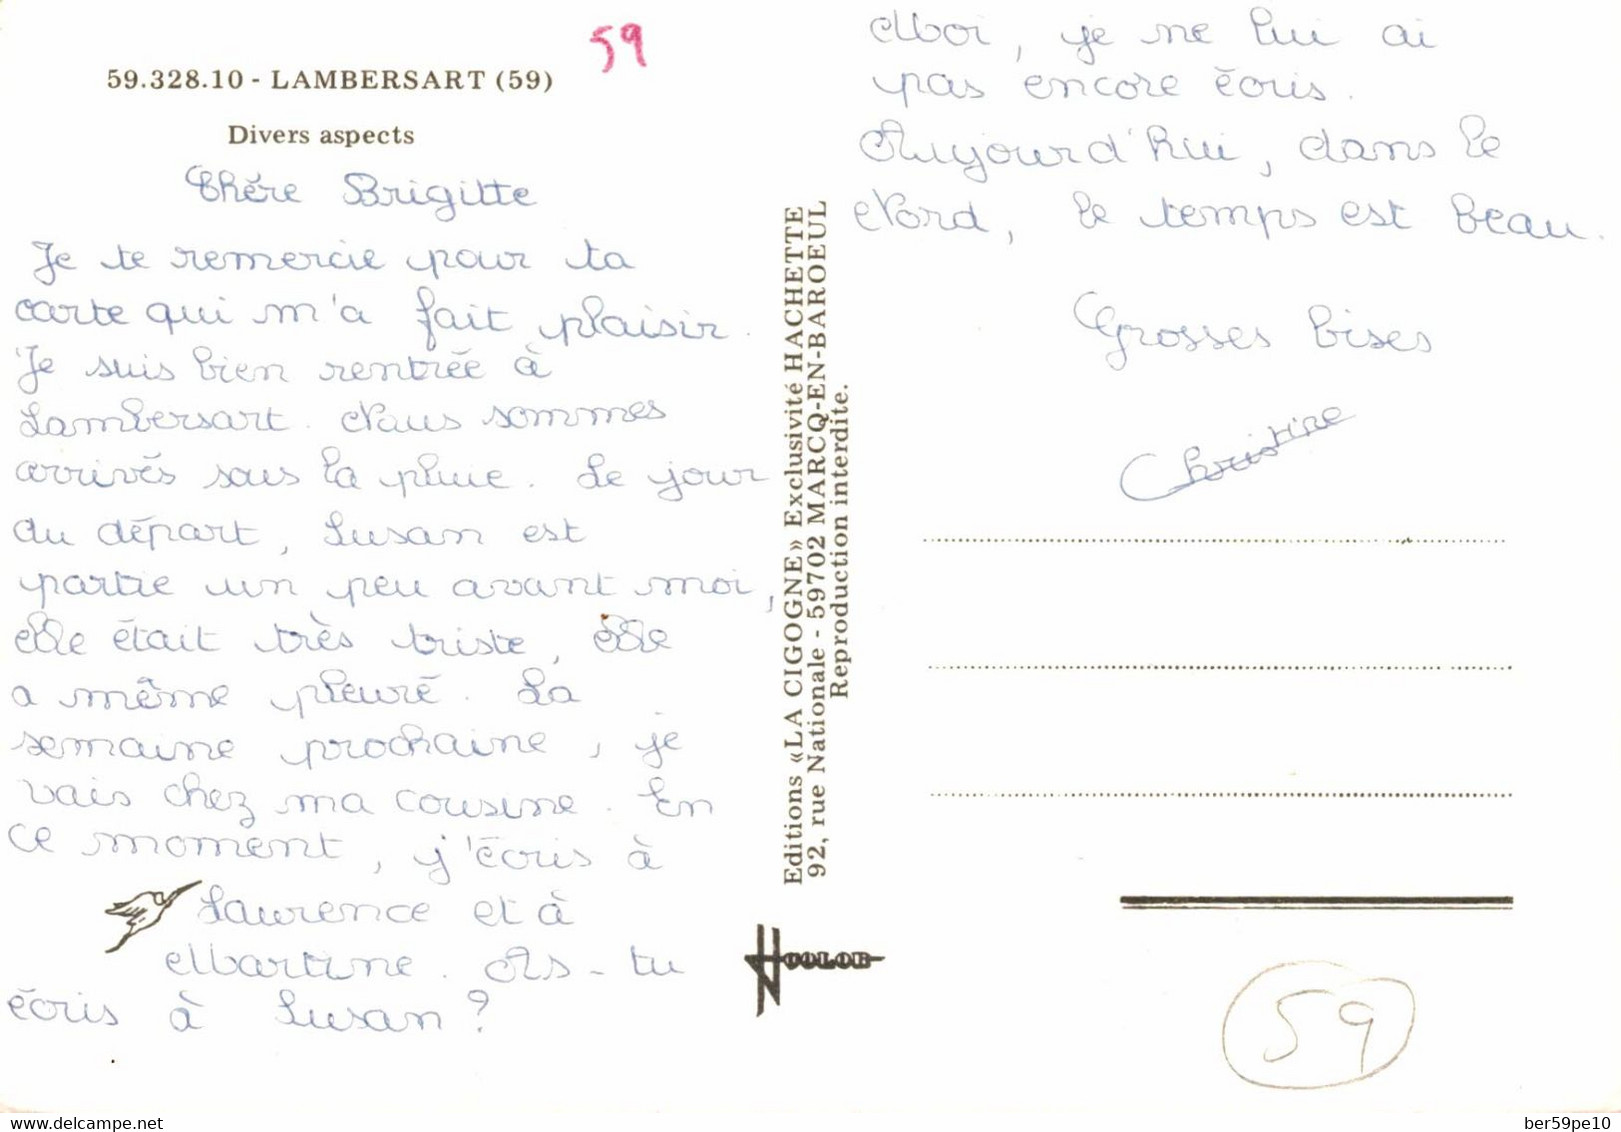 59
59.328.10 - LAMBERSART (59)
Divers aspects
Chére Brigitte
Je te remercie pour ta
carte qui m'a fait plaisir.
Je suis bien rentrée à
Lambersart. Nous sommes
arrivés sous la pluie. Le jour
du départ, Susan est
partie un peu avant moi,
elle était très triste, elle
a même pleuré. La
semaine prochaine, je
vais chez ma cousine. En
ce moment, j'écris à
Laurence et à
Martine. As-tu
écris à Susan ?
Editions «LA CIGOGNE» Exclusivité HACHETTE
92, rue Nationale - 59702 MARCQ-EN-BAROEUL
Reproduction interdite.
COLOR
Moi, je ne lui ai
pas encore écris.
Aujourd'hui, dans le
Nord, le temps est beau.
Grosses bises
Christine
59
delcampe.net
ber59pe10